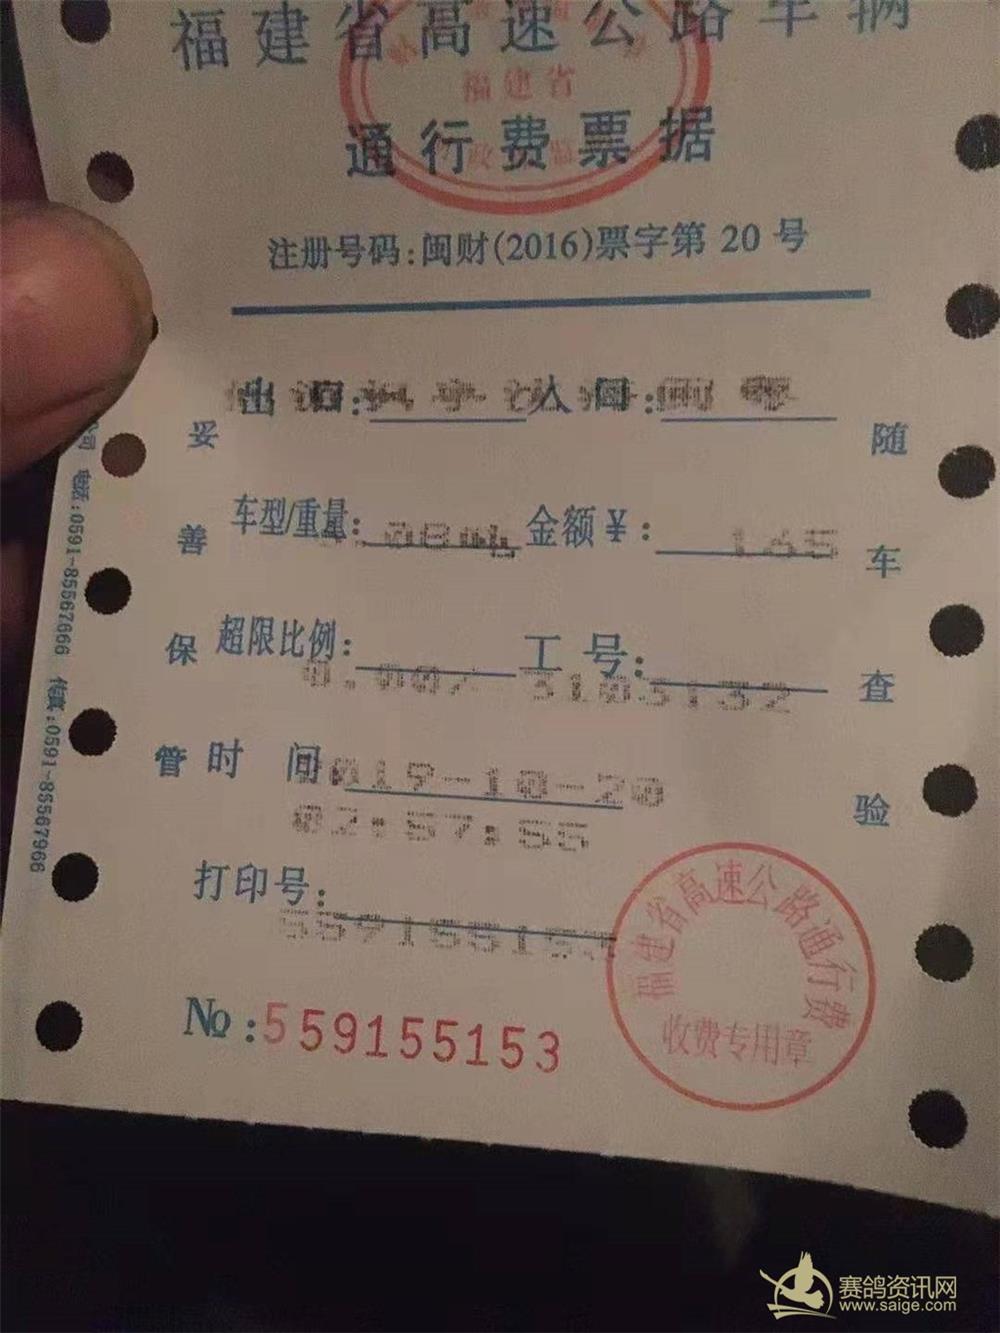 福建省高速公路车辆
福建省
通行费票据
注册号码:闽财(2016)票字第 20 号
出 口: 入 口:
车型/重量: .08吨 金额¥: 165
超限比例: 0.00% 工号: 3103132
时 间: 2019-10-20
02:57:55
打印号:
№:559155153
妥善保管
随车查验
电话:0591-85567666 传真:0591-85567966
福建省高速公路通行费
收费专用章
赛鸽资讯网
www.saige.com